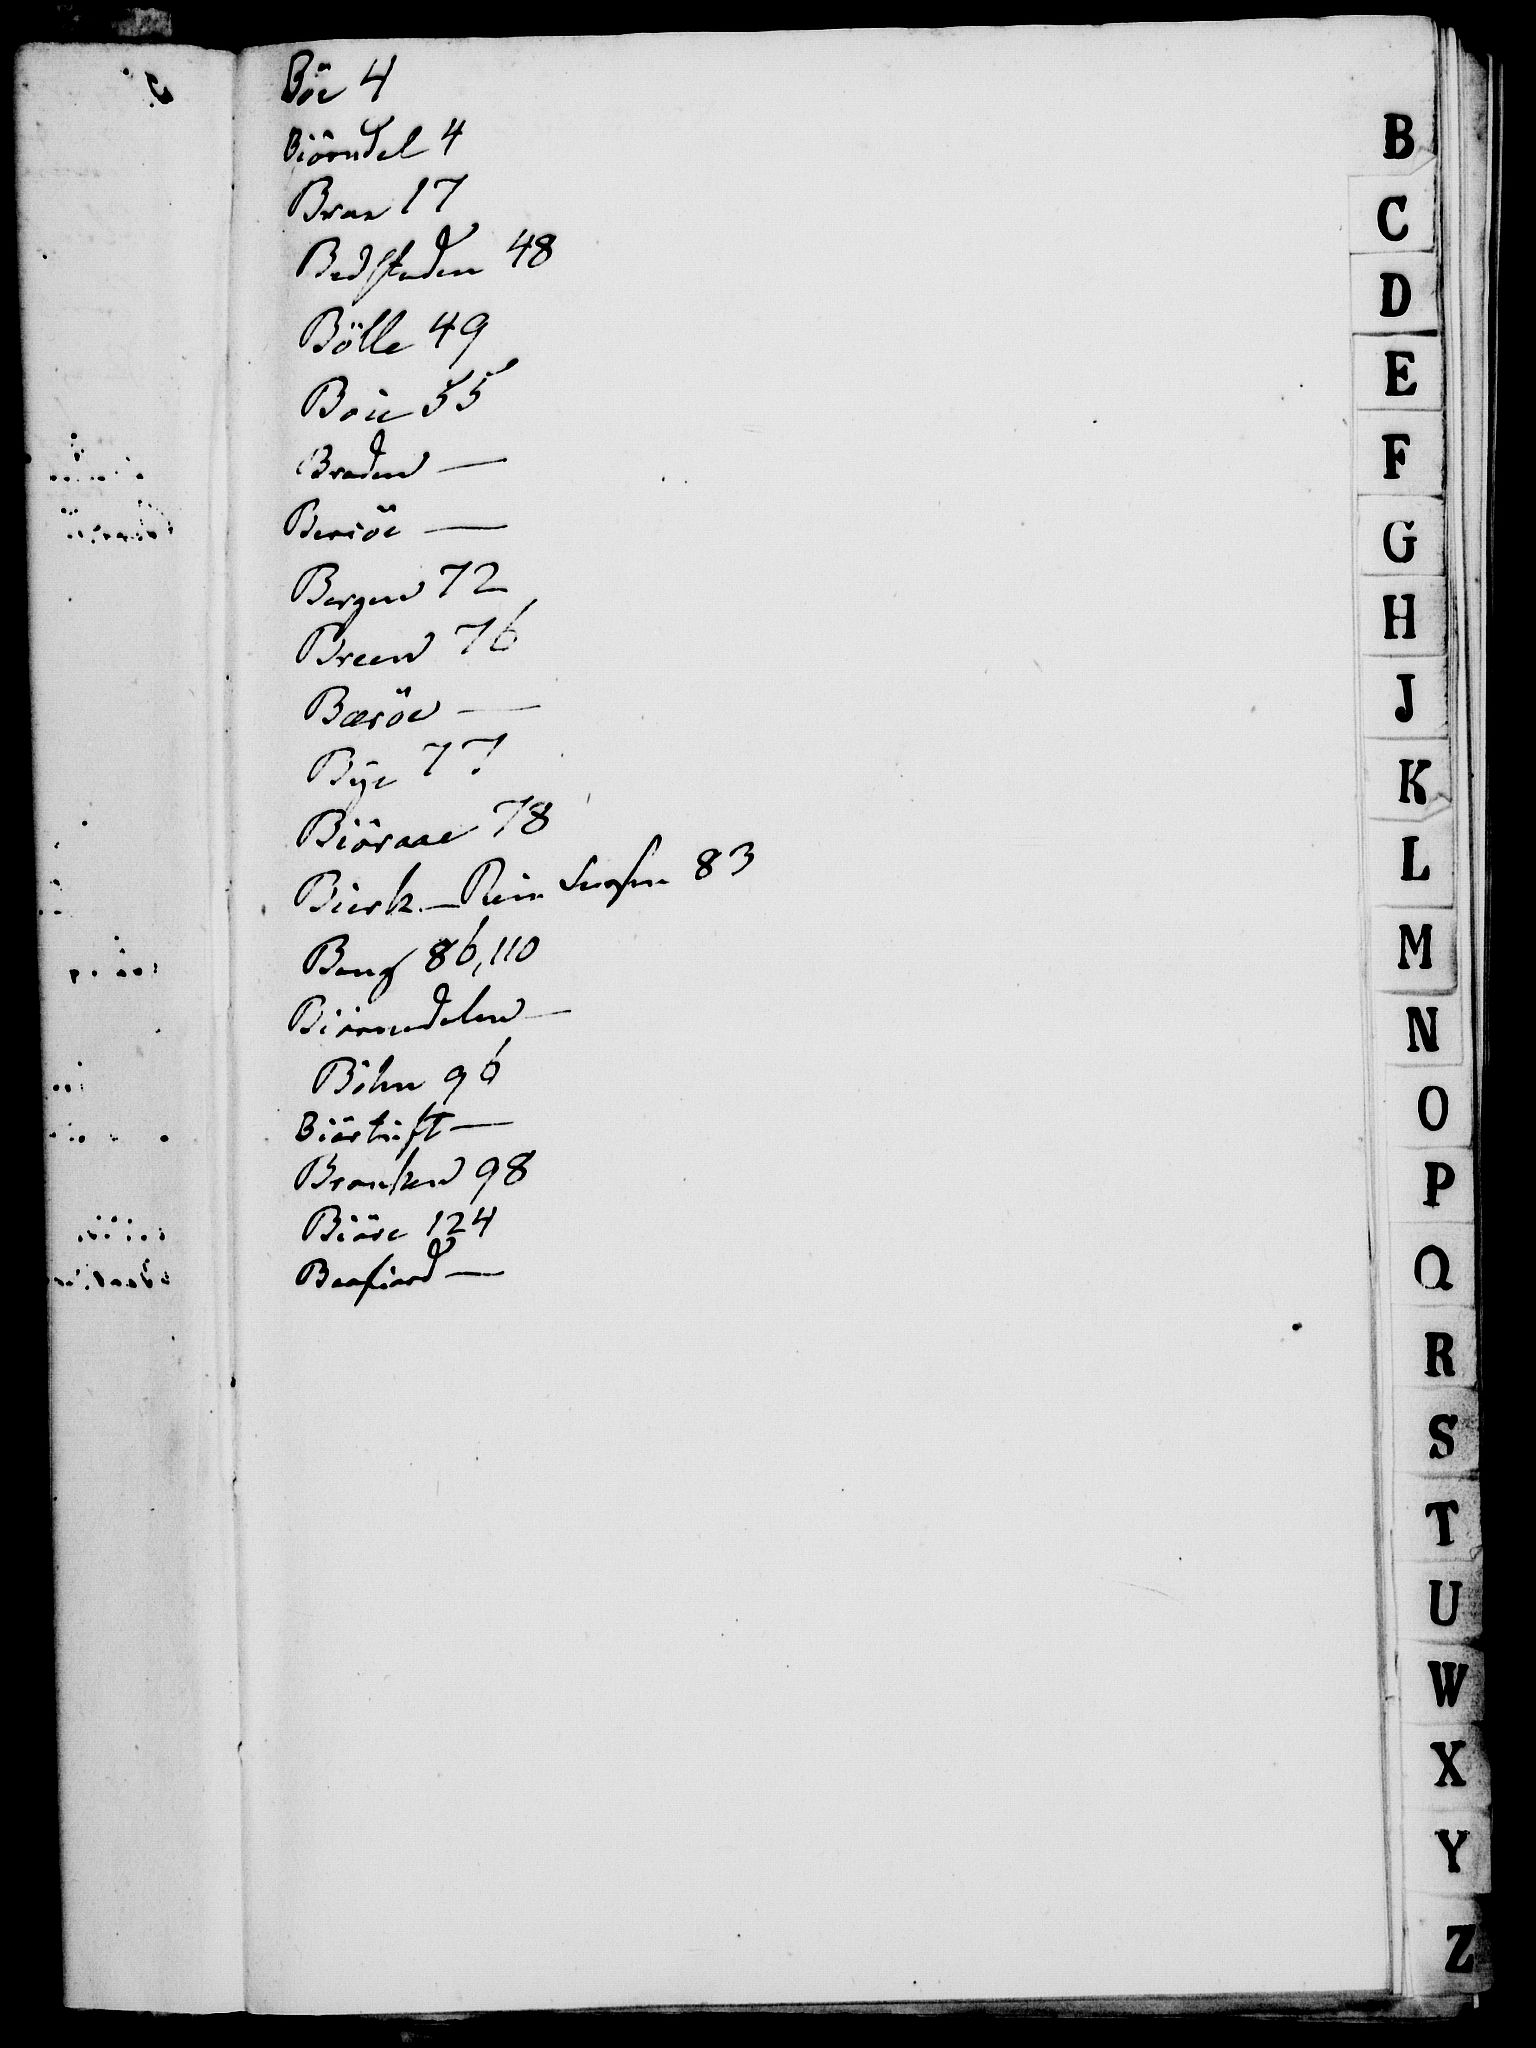 Böe 4
Biörndel 4
Braa 17
Bedstaden 48
Bölle 49
Boie 55
Braden —
Beröe —
Bergen 72
Breen 76
Bæröe —
Bÿe 77
Biöraae 78
Bierk — 83
Bang 86, 110
Biörnedalen —
Böhn 96
Biörtuft —
Branken 98
Biöre 124
Baafiord —
B
C
D
E
F
G
H
J
K
L
M
N
O
P
Q
R
S
T
U
W
X
Y
Z